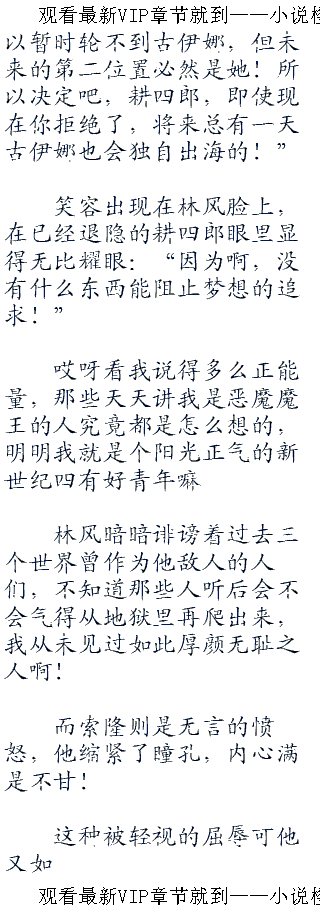 观看最新VIP章节就到——小说检
以暂时轮不到古伊娜，但未
来的第二位置必然是她！所
以决定吧，耕四郎，即使现
在你拒绝了，将来总有一天
古伊娜也会独自出海的！”
笑容出现在林风脸上，
在已经退隐的耕四郎眼里显
得无比耀眼：“因为啊，没
有什么东西能阻止梦想的追
求！”
哎呀看我说得多么正能
量，那些天天讲我是恶魔魔
王的人究竟都是怎么想的，
明明我就是个阳光正气的新
世纪四有好青年嘛
林风暗暗诽谤着过去三
个世界曾作为他敌人的人
们，不知道那些人听后会不
会气得从地狱里再爬出来，
我从未见过如此厚颜无耻之
人啊！
而索隆则是无言的愤
怒，他缩紧了瞳孔，内心满
是不甘！
这种被轻视的屈辱可他
又如
观看最新VIP章节就到——小说检